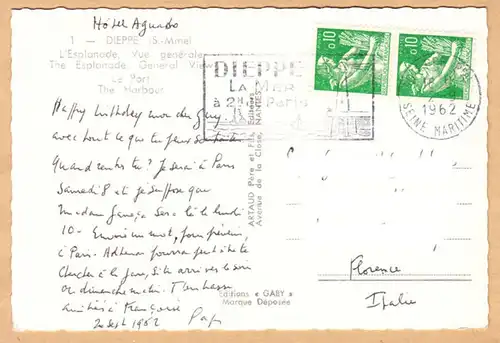 Hôtel Aguado
1 — DIEPPE (S.-Mme)
L'Esplanade, Vue générale
The Esplanade, General View
Le Port
The Harbour
Happy birthday mon cher
avec tout ce que tu peux souhaiter
Quand rentres tu? Je serai à Paris
Samedi 8 et je suppose que
madame sera là le lundi
10 - Envoie un mot, pour prévenir,
à Paris. pourra peut être te
chercher à la gare, si tu arrives le soir
ou dimanche matin. T'embrasse
amitiés à Françoise
Pap
2 Sept 1962
ARTAUD Père et Fils, Éditeurs
Avenue de la Close, NANTES
Éditions « GABY »
Marque Déposée
DIEPPE
LA MER
à 2H de Paris
0,10
0,10
1962
SEINE MARITIME
Florence
Italie